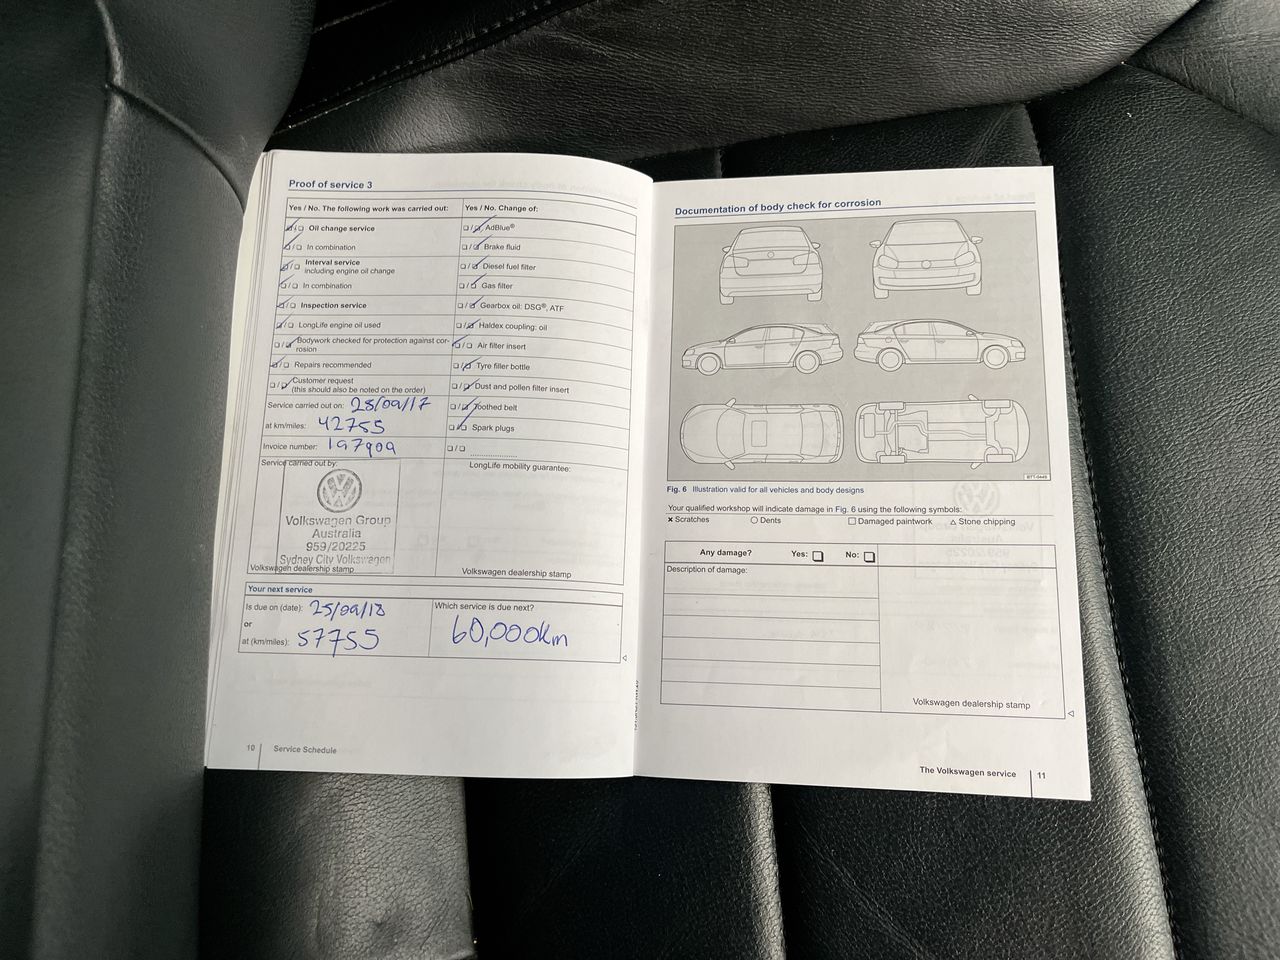 Proof of service 3
Yes / No. The following work was carried out:
Yes / No. Change of:
Oil change service
AdBlue®
In combination
Brake fluid
Interval service
including engine oil change
Diesel fuel filter
In combination
Gas filter
Inspection service
Gearbox oil: DSG®, ATF
LongLife engine oil used
Haldex coupling: oil
Bodywork checked for protection against cor-
rosion
Air filter insert
Repairs recommended
Tyre filler bottle
Customer request
(this should also be noted on the order)
Dust and pollen filter insert
Service carried out on: 25/09/17
Toothed belt
at km/miles: 42755
Spark plugs
Invoice number: 197909
Service carried out by:
LongLife mobility guarantee:
Volkswagen Group
Australia
959/20225
Sydney City Volkswagen
Volkswagen dealership stamp
Volkswagen dealership stamp
Your next service
Is due on (date): 25/09/18
or
at (km/miles): 57755
Which service is due next?
60,000km
10 Service Schedule
Documentation of body check for corrosion
Fig. 6 Illustration valid for all vehicles and body designs
Your qualified workshop will indicate damage in Fig. 6 using the following symbols:
× Scratches ○ Dents □ Damaged paintwork △ Stone chipping
Any damage? Yes: □ No: □
Description of damage:
Volkswagen dealership stamp
The Volkswagen service 11